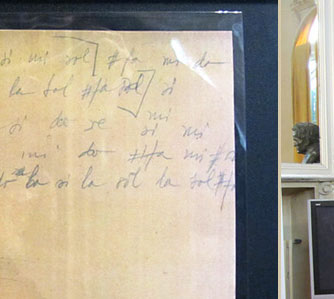 si mi sol] #fa mi do
la sol #fa sol] si
si do re mi
si mi
mi do #fa mi #
do la si la sol la sol #fa